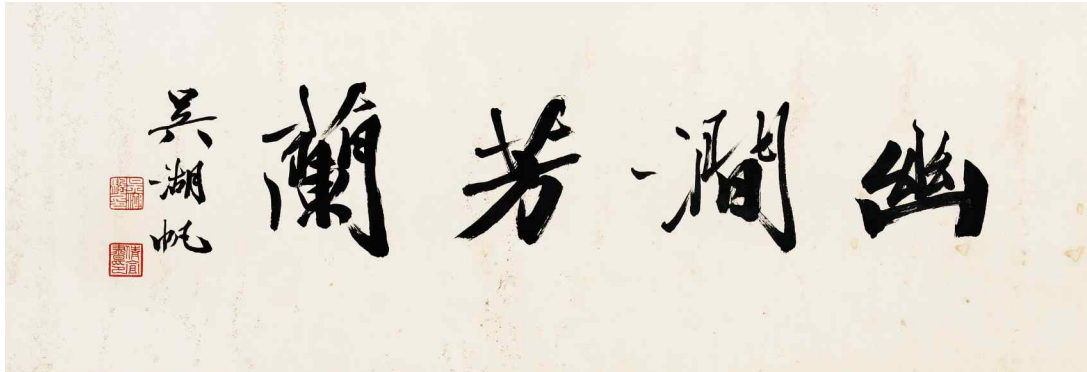 幽澗芳蘭
吳湖帆